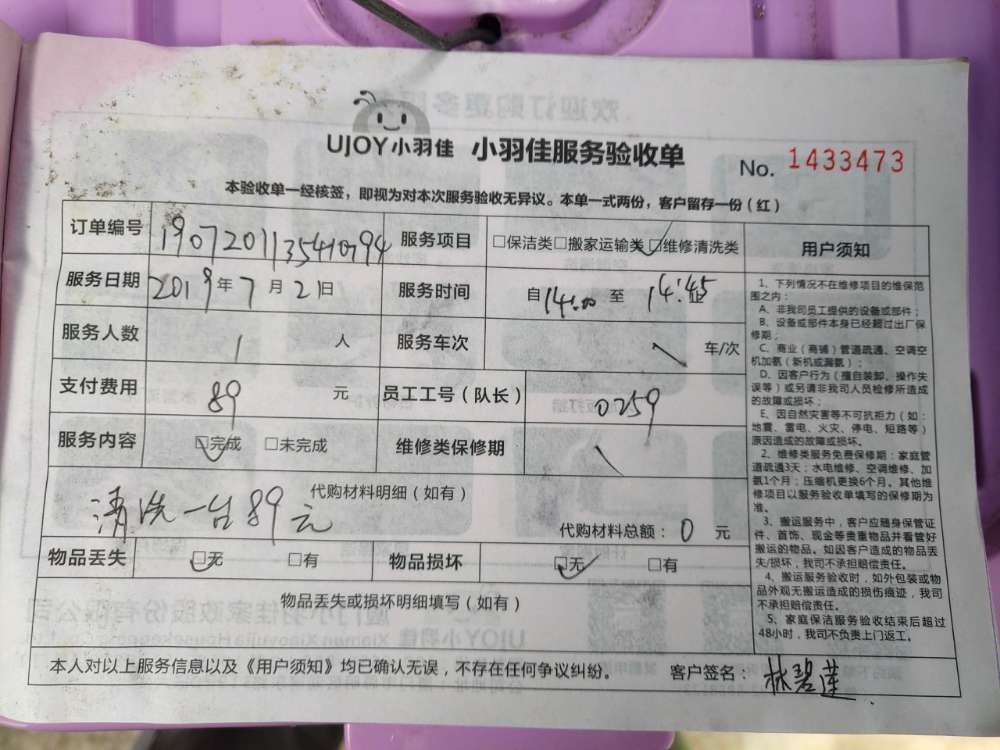 UJOY小羽佳 小羽佳服务验收单 No. 1433473
本验收单一经核签，即视为对本次服务验收无异议。本单一式两份，客户留存一份（红）
订单编号 1907201135410794 服务项目 □保洁类□搬家运输类☑维修清洗类
服务日期 2019年7月21日 服务时间 自14:00至14:45
服务人数 1 人 服务车次 车/次
支付费用 89 元 员工工号（队长） 0259
服务内容 ☑完成 □未完成 维修类保修期
代购材料明细（如有）
清洗一台89元
代购材料总额：0 元
物品丢失 ☑无 □有 物品损坏 ☑无 □有
物品丢失或损坏明细填写（如有）
用户须知
1、下列情况不在维修项目的维保范
围之内：
A、非我司员工提供的设备或部件；
B、设备或部件本身已经超过出厂保
修期；
C、商业（商铺）管道疏通、空调空
机加氨（新机或漏氨）；
D、因客户行为（擅自装卸、操作失
误等）或另请非我司人员检修所造成
的故障或损坏；
E、因自然灾害等不可抗拒力（如：
地震、雷电、火灾、停电、短路等）
原因造成的故障或损坏。
2、维修类服务免费保修期：家庭管
道疏通3天；水电维修、空调维修、加
氨1个月；压缩机更换6个月。其他维
修项目以服务验收单填写的保修期为
准。
3、搬运服务中，客户应随身保管证
件、首饰、现金等贵重物品并看管好
搬运的物品。如因客户造成的物品丢
失/损坏，我司不承担赔偿责任。
4、搬运服务验收时，如外包装或物
品外观无搬运造成的损伤痕迹，我司
不承担赔偿责任。
5、家庭保洁服务验收结束后超过
48小时，我司不负责上门返工。
本人对以上服务信息以及《用户须知》均已确认无误，不存在任何争议纠纷。 客户签名：林碧莲